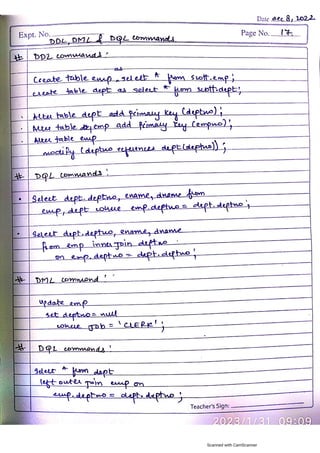 Date dec 8, 2022
Expt. No. DDL, DML & DQL commands Page No. 17
# DDL commands :
as
Create table emp select * from scott.emp ;
create table dept as select * from scott.dept ;
Alter table dept add primary key (deptno) ;
Alter table emp add Primary key (empno) ;
Alter table emp
modify (deptno references dept (deptno)) ;
# DQL commands :
Select dept.deptno, ename, dname from
emp, dept where emp.deptno = dept.deptno ;
Select dept.deptno, ename, dname
from emp inner join deptno
on emp.deptno = dept.deptno ;
# DML command :
update emp
set deptno = null
where job = 'CLERK' ;
# DQL commands :
Select * from dept
left outer join emp on
emp.deptno = dept.deptno ;
Teacher's Sign:
2023/1/31 09:09
Scanned with CamScanner